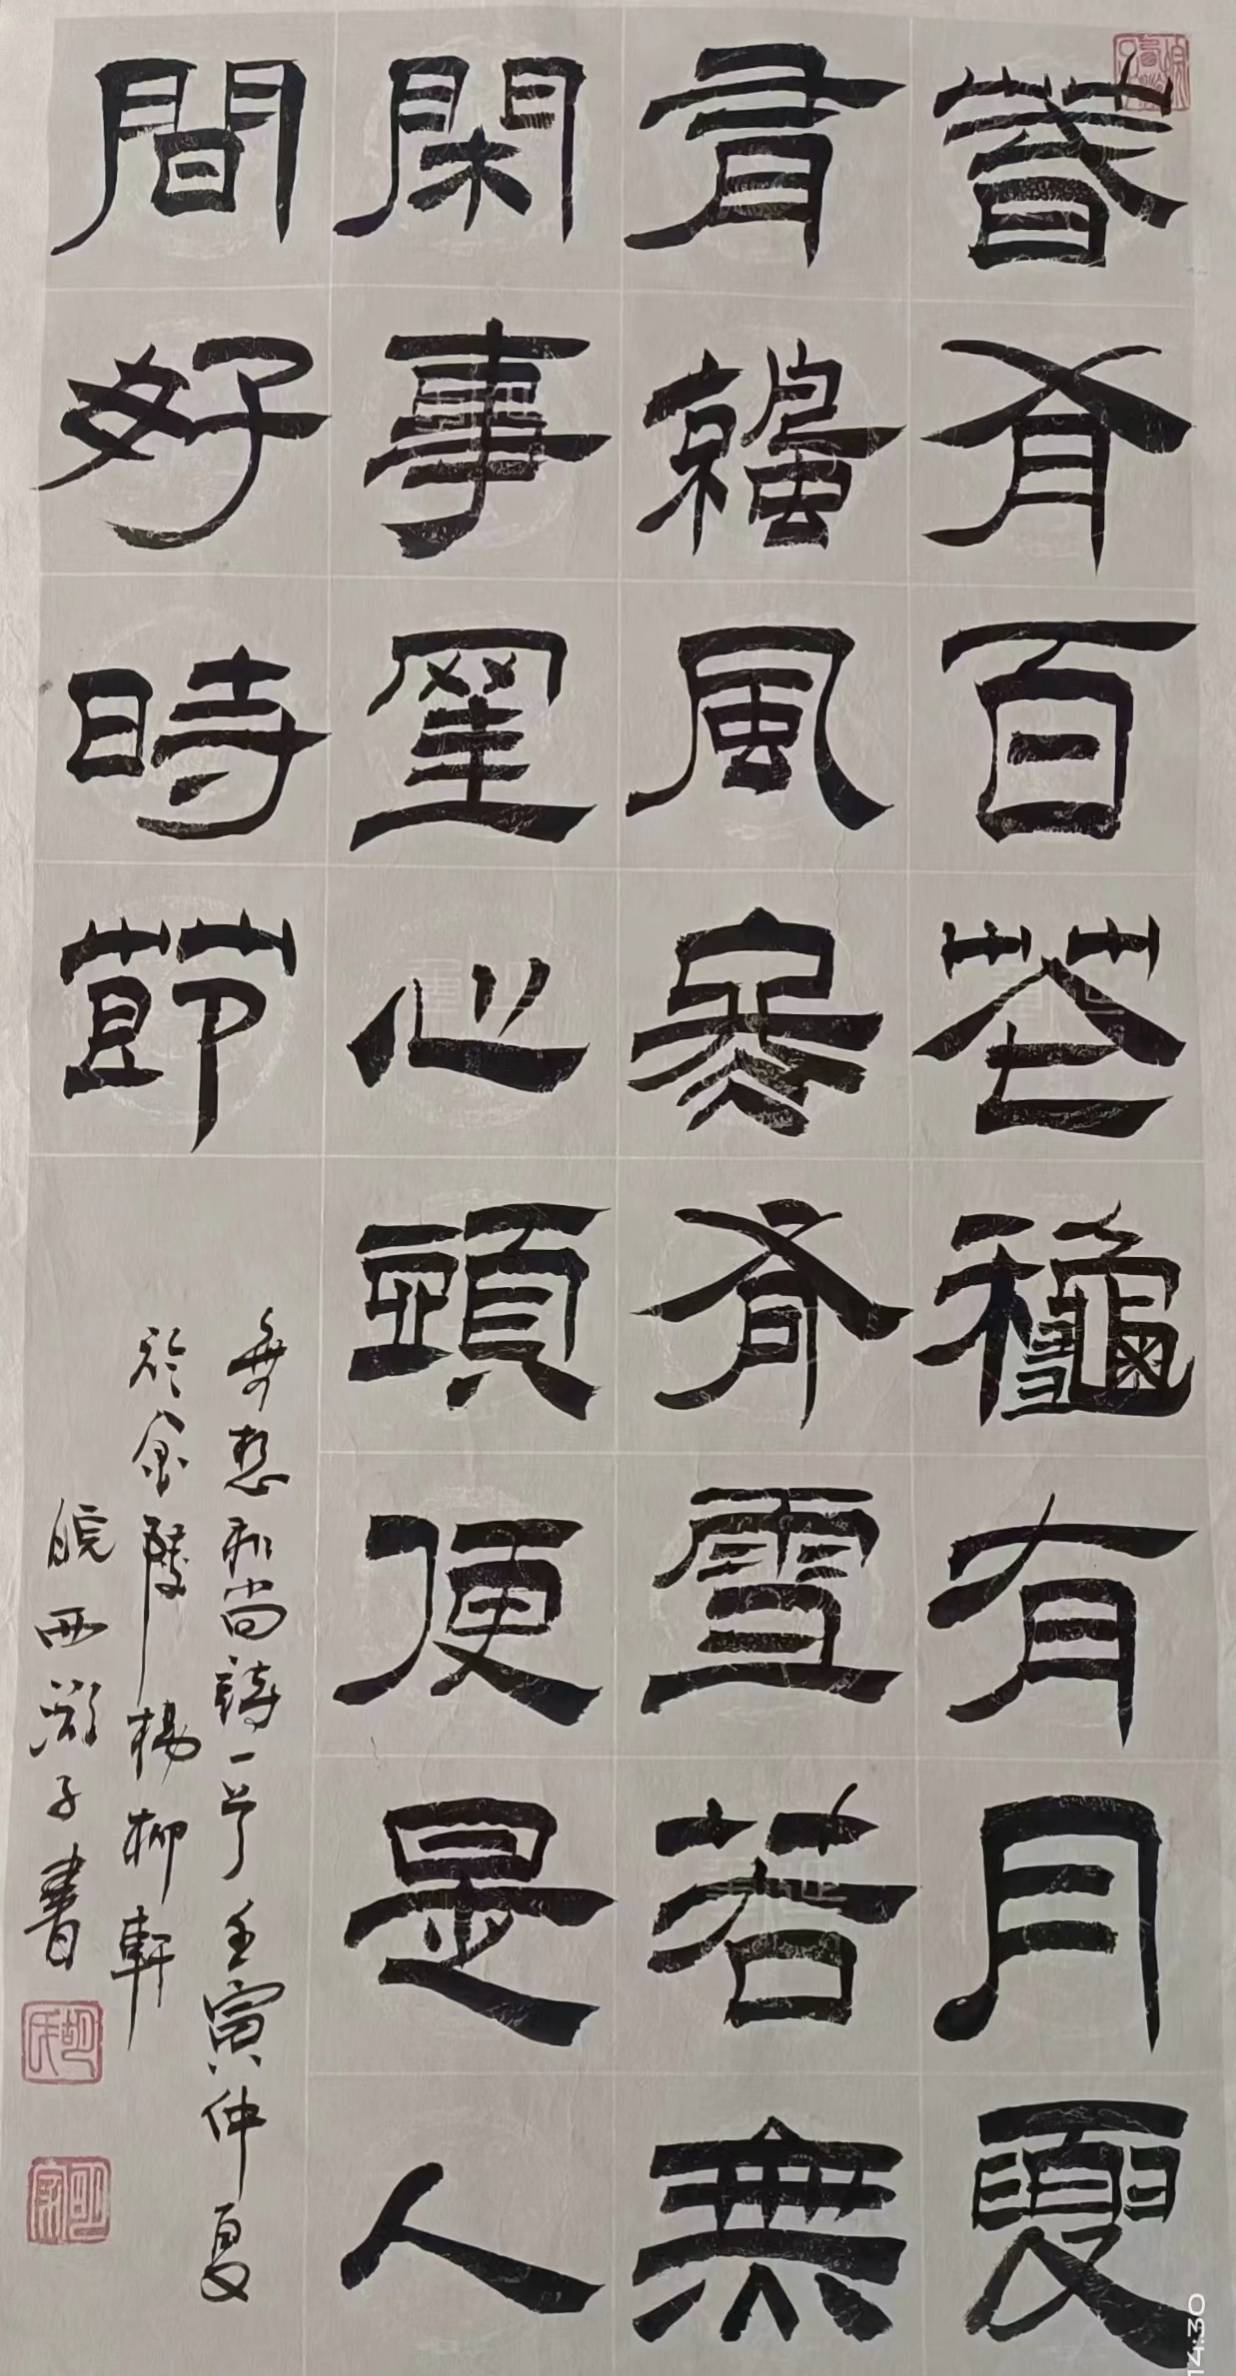 春有百花龝有月夏
有風冬有雪若無
閑事罣心頭便是人
間好時節
無想和尚詩一首壬寅仲夏
於金陵楊柳軒
皖西游子書
胡氏
14:30